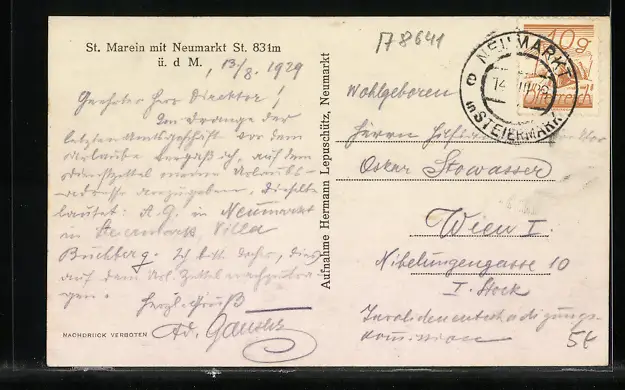 St. Marein mit Neumarkt St. 831m
ü. d M.
13/8. 1929
Geehrter Herr Direktor!
Im Drange der
letzten Amtsgeschäfte vor dem
Urlaube vergaß ich, auf dem
meine Urlaubs-
adresse anzugeben. Dieselbe
lautet: A. G. in Neumarkt
in Steiermark, Villa
Buchberg. Ich bitte daher, dies
auf dem Url. Zettel nachzutra-
gen.
Herzl. Gruß
Ad.
NACHDRUCK VERBOTEN
Aufnahme Hermann Lepuschütz, Neumarkt
78641
NEUMARKT
STEIERMARK
10g
Österreich
Wohlgeboren
Herrn
Oskar Stowasser
Wien I.
Nibelungengasse 10
I. Stock
Invalidenentschädigungs-
kommission
5€